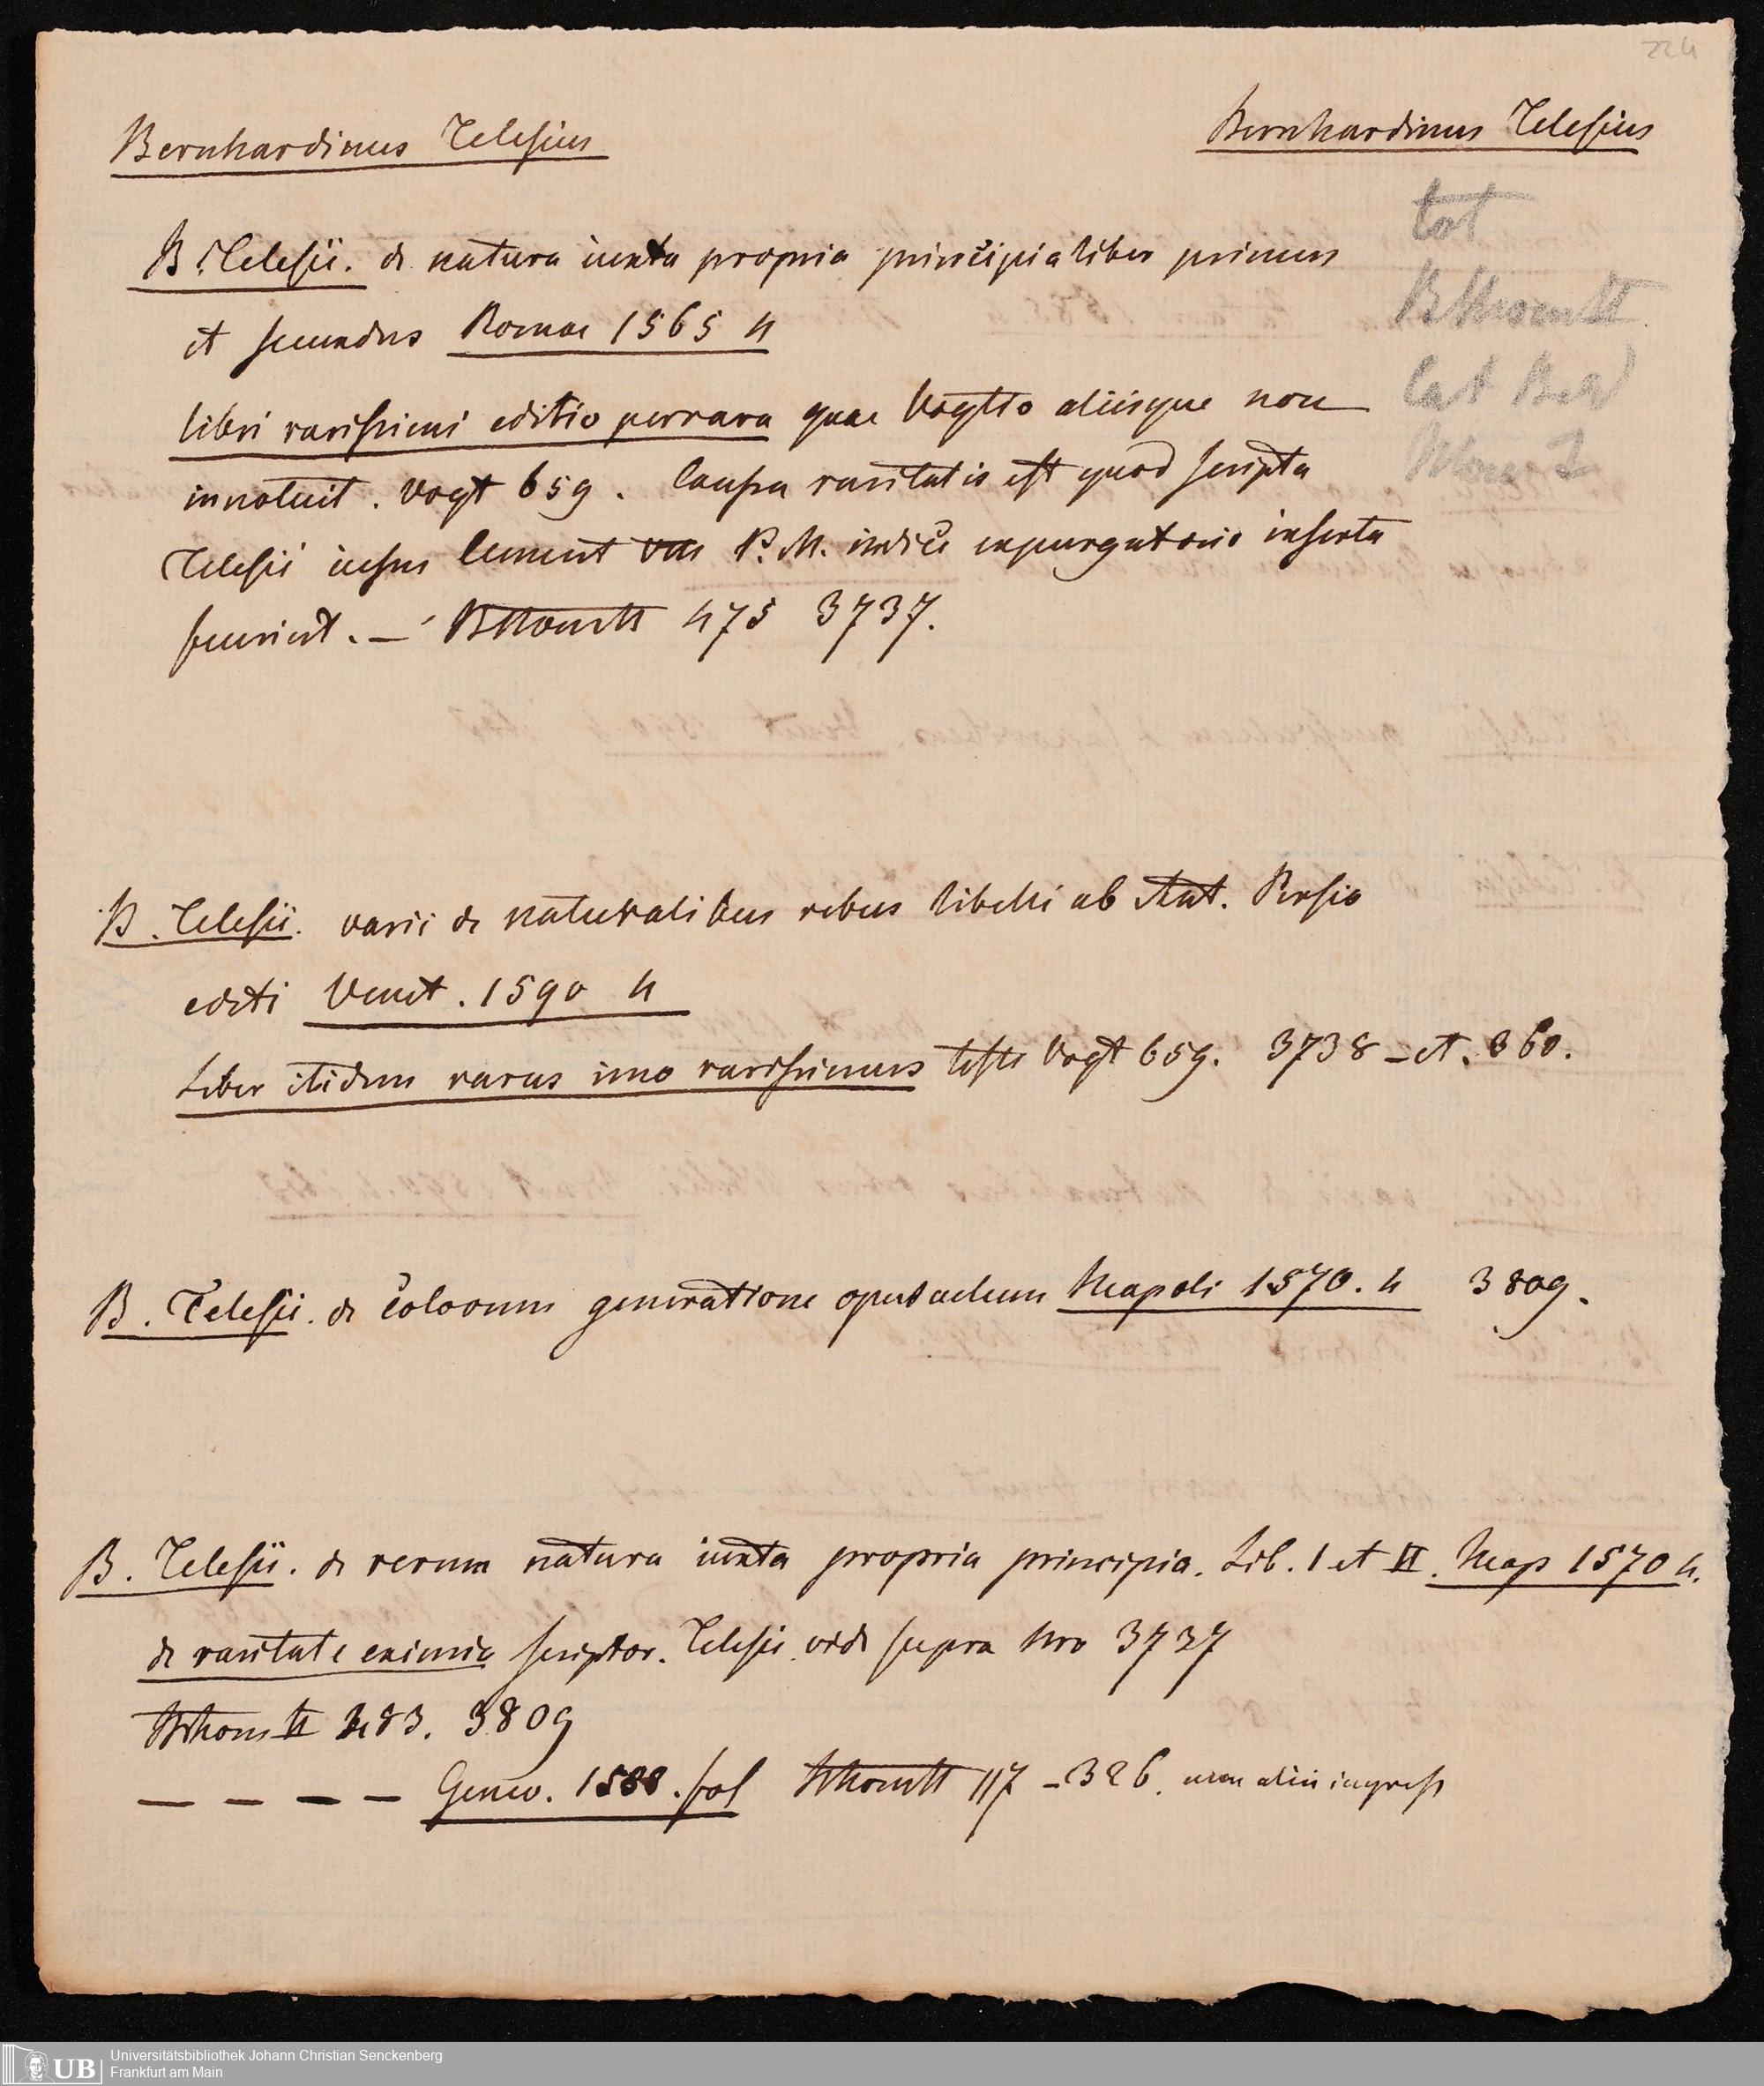 224
Bernhardinus Telesius
Bernhardinus Telesius
tot
B. Telesii. de natura iuxta propria principia liber primus
et secundus Romae 1565 4
libri rarissimi editio perrara quae Vogtio aliisque non
innotuit. Vogt 659. Caussa raritatis est quod scripta
Telesii iussu Clement VIII P. M. indici expurgatorio inserta
fuerint. — BThomII 475 3737.
B. Telesii. varii de naturalibus rebus libelli ab Ant. Persio
editi Venet. 1590 4
Liber itidem rarus imo rarissimus teste Vogt 659. 3738 - et. 860.
B. Telesii. de Colorum generatione opusculum Neapoli 1570. 4 3809.
B. Telesii. de rerum natura iuxta propria principia. Lib. I et II. Neap 1570 4.
de raritate eximia scriptor. Telesii vide supra Nro 3737
BThom II 483. 3809
— — — — Genev. 1588. fol BThomII 117 - 326. cum aliis impress
UB Universitätsbibliothek Johann Christian Senckenberg
Frankfurt am Main